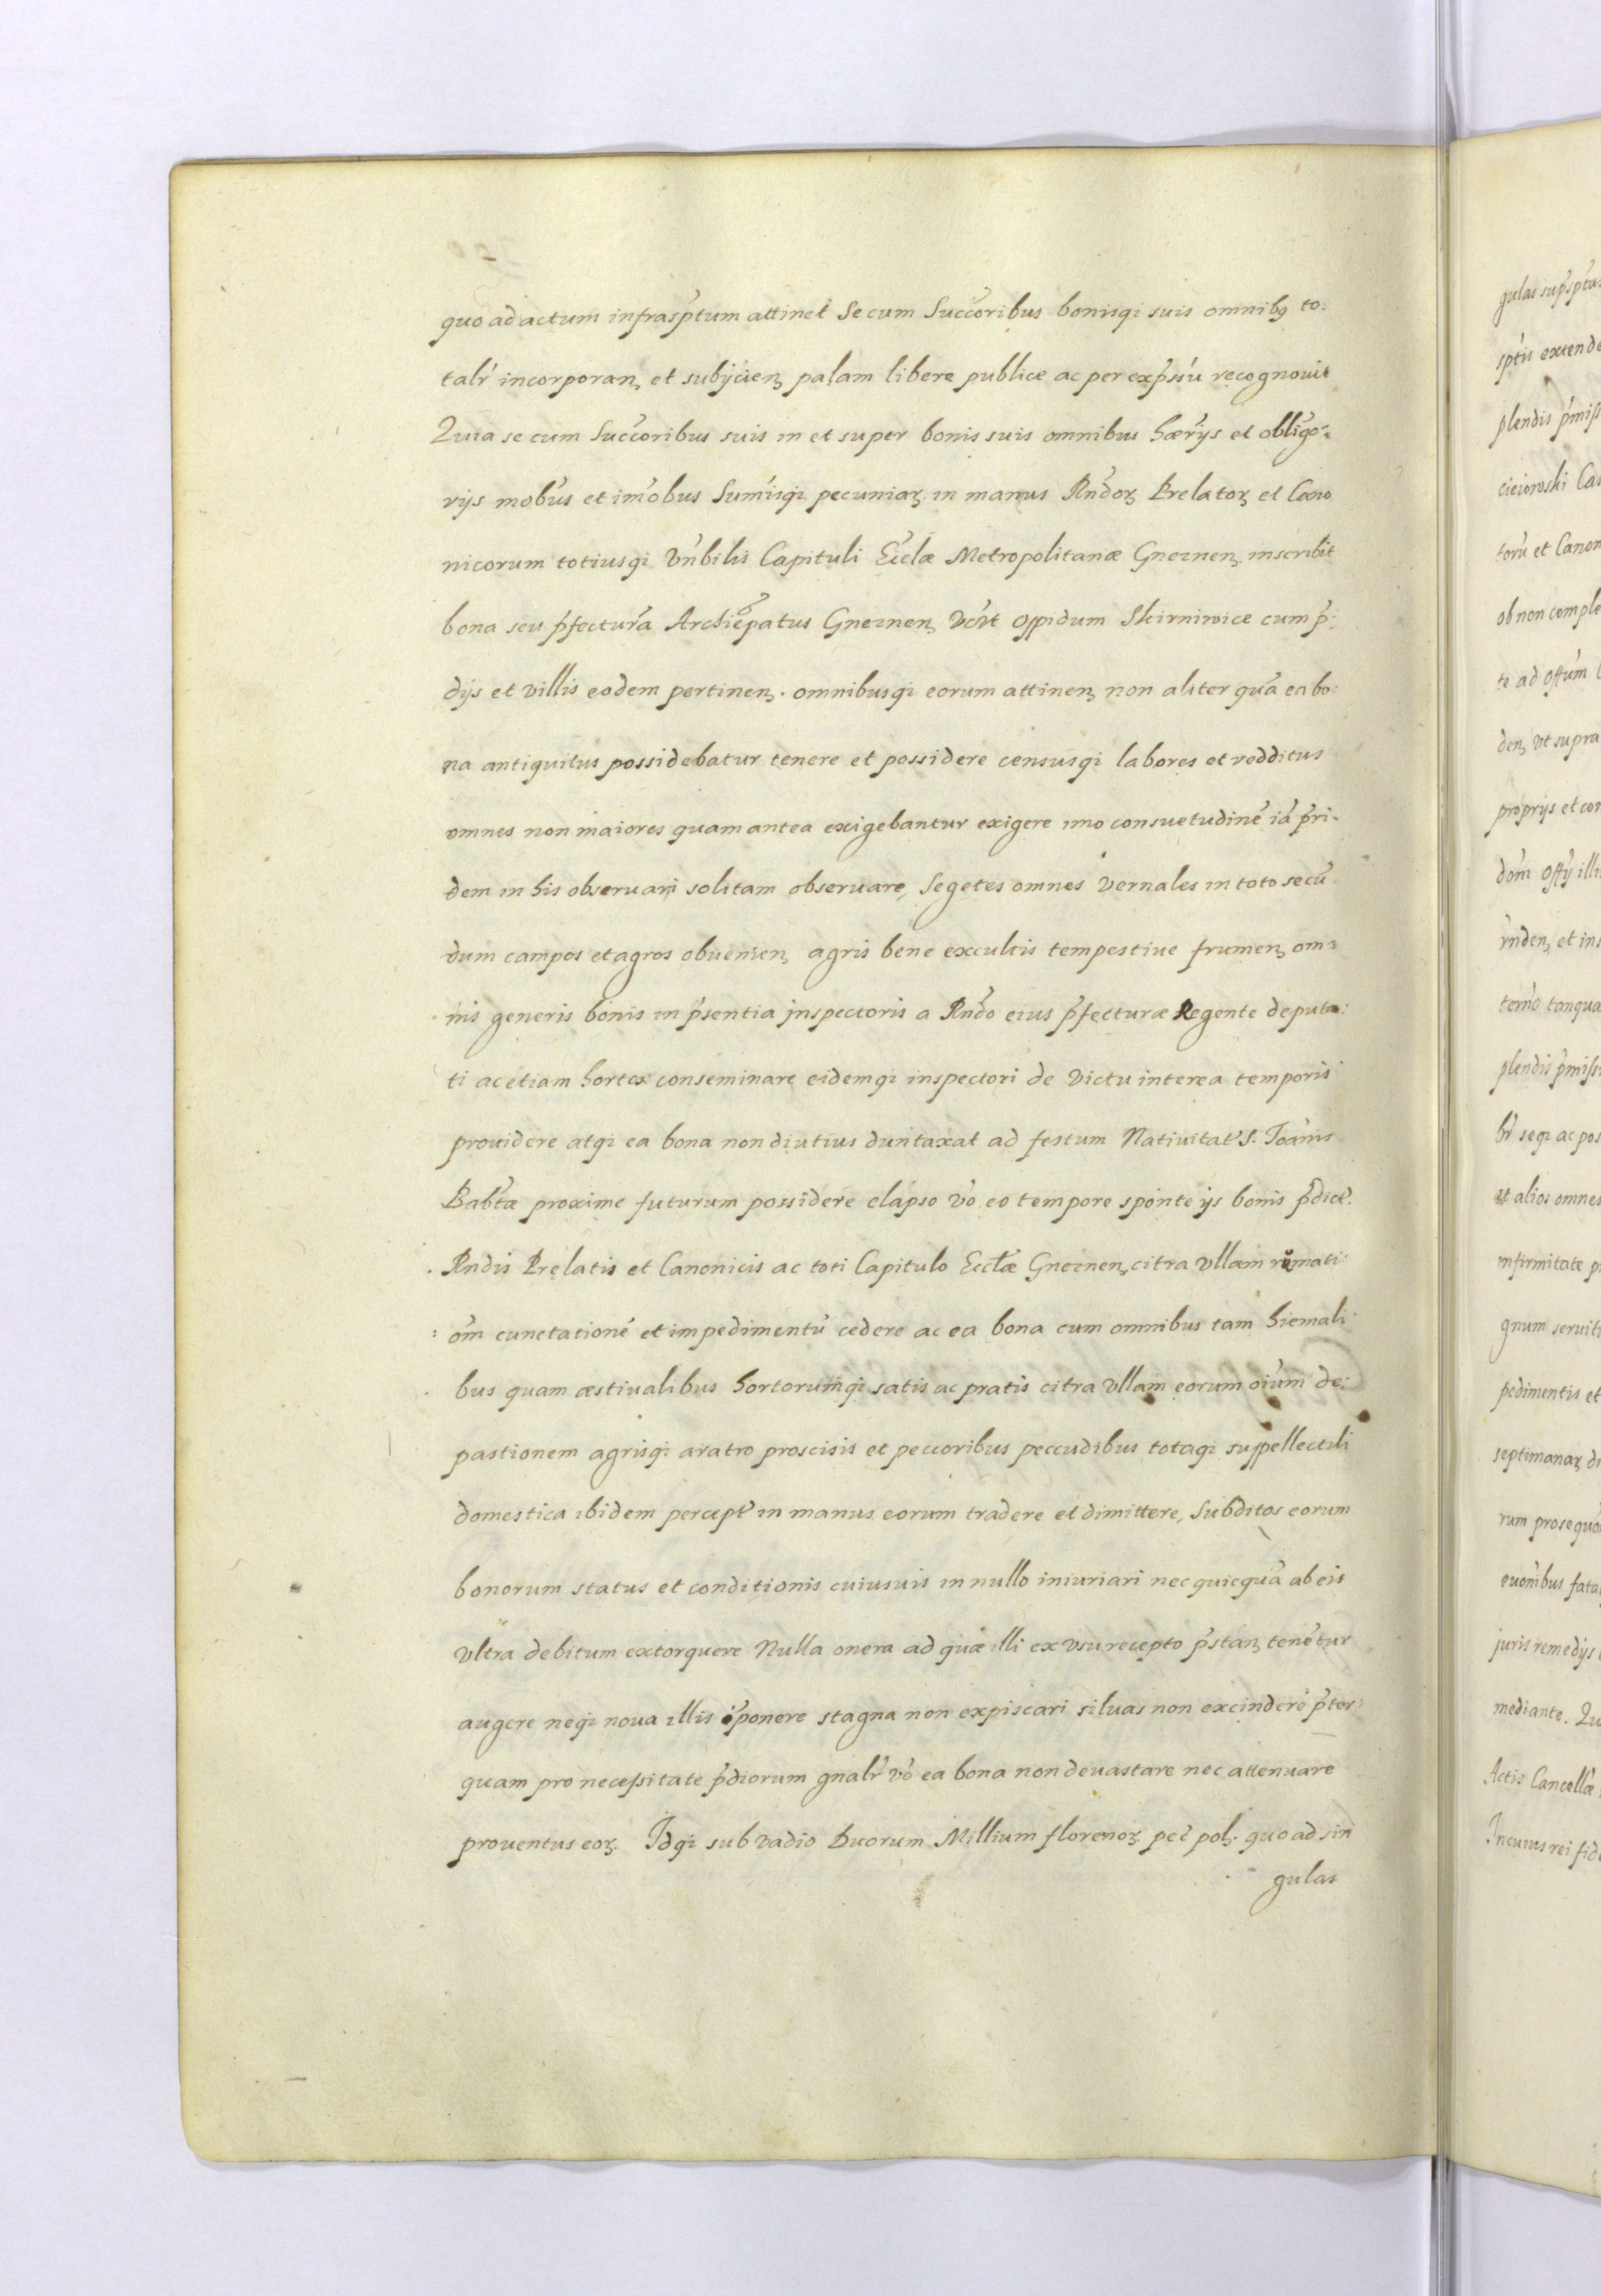 quo ad actum infrasptum attinet se cum Succoribus bonisqi suis omnibq to:
talr incorporanʒ et subijcienʒ palam libere publice ac per expssu recognouit
Quia se cum Succoribus suis in et super bonis suis omnibus hærijs et obligo:
rijs mobus et imobus Sumisqi pecuniaʒ in manus Rndoʒ Prelatoʒ et Cano
nicorum totiusqi Vnbilis Capituli Ecclæ Metropolitanæ Gneznenʒ inscribit
bona seu pfecturã Archiepatus Gneznenʒ Vct oppidum Skirniwice cum p:
dijs et villis eodem pertinenʒ. omnibusqi eorum attinenʒ non aliter quã ea bo:
na antiquitus possidebatur tenere et possidere censusqi labores et redditus
omnes non maiores quam antea exigebantur exigere imo consuetudinẽ iã pri:
dem in his obseruari solitam obseruare, Segetes omnes Vernales in toto secũ
dum campos et agros obuenienʒ agris bene excultis tempestiue frumenʒ om:
nis generis bonis in psentia jnspectoris a Rndo eius pfecturæ Regente deputa:
ti ac etiam hortos conseminare eidemqi inspectori de Victu interea temporis
prouidere atqi ea bona non diutius duntaxat ad festum Natiuitat S. Joãnis
Babtæ proxime futurum possidere elapso vo eo tempore sponte ijs bonis pdict.
Rndis Prelatis et Canonicis ac toti Capitulo Ecclæ Gneznenʒ citra Vllam remati:
om cunctationẽ et impedimentũ cedere ac ea bona cum omnibus tam hiemali
bus quam æstiualibus hortorumqi satis ac pratis citra Vllam eorum oium de:
pastionem agrisqi aratro proscisis et peccoribus peccudibus totaqi suppellectili
domestica ibidem percept in manus eorum tradere et dimittere, Subditos eorum
bonorum status et conditionis cuiusuis in nullo iniuriari nec quicquã ab eis
Vltra debitum extorquere Nulla onera ad quæ illi ex Vsu recepto pstanʒ tenẽtur
augere neqi noua illis iponere stagna non expiscari siluas non excindere pter:
quam pro necessitate pdiorum gnalr vo ea bona non deuastare nec attenuare
prouentus eoʒ. Idqi sub vadio Duorum Millium florenoʒ pec polʒ. quo ad sin
gulas
gulas supsptas
plendis pmiss
cieiowski Ca
toru et Canon
ob non comple
te ad offum
denʒ vt supra
proprijs et con
dom offij illi
rndenʒ et ins
plendis pmiss
br seqi ac pos
et alios omnes
infirmitate p
gnum seruit
pedimentis et
septimanaʒ d
rum prosequo
euonibus fata
juris remedijs
mediante. Qu
Actis Cancellæ
In cuius rei fid